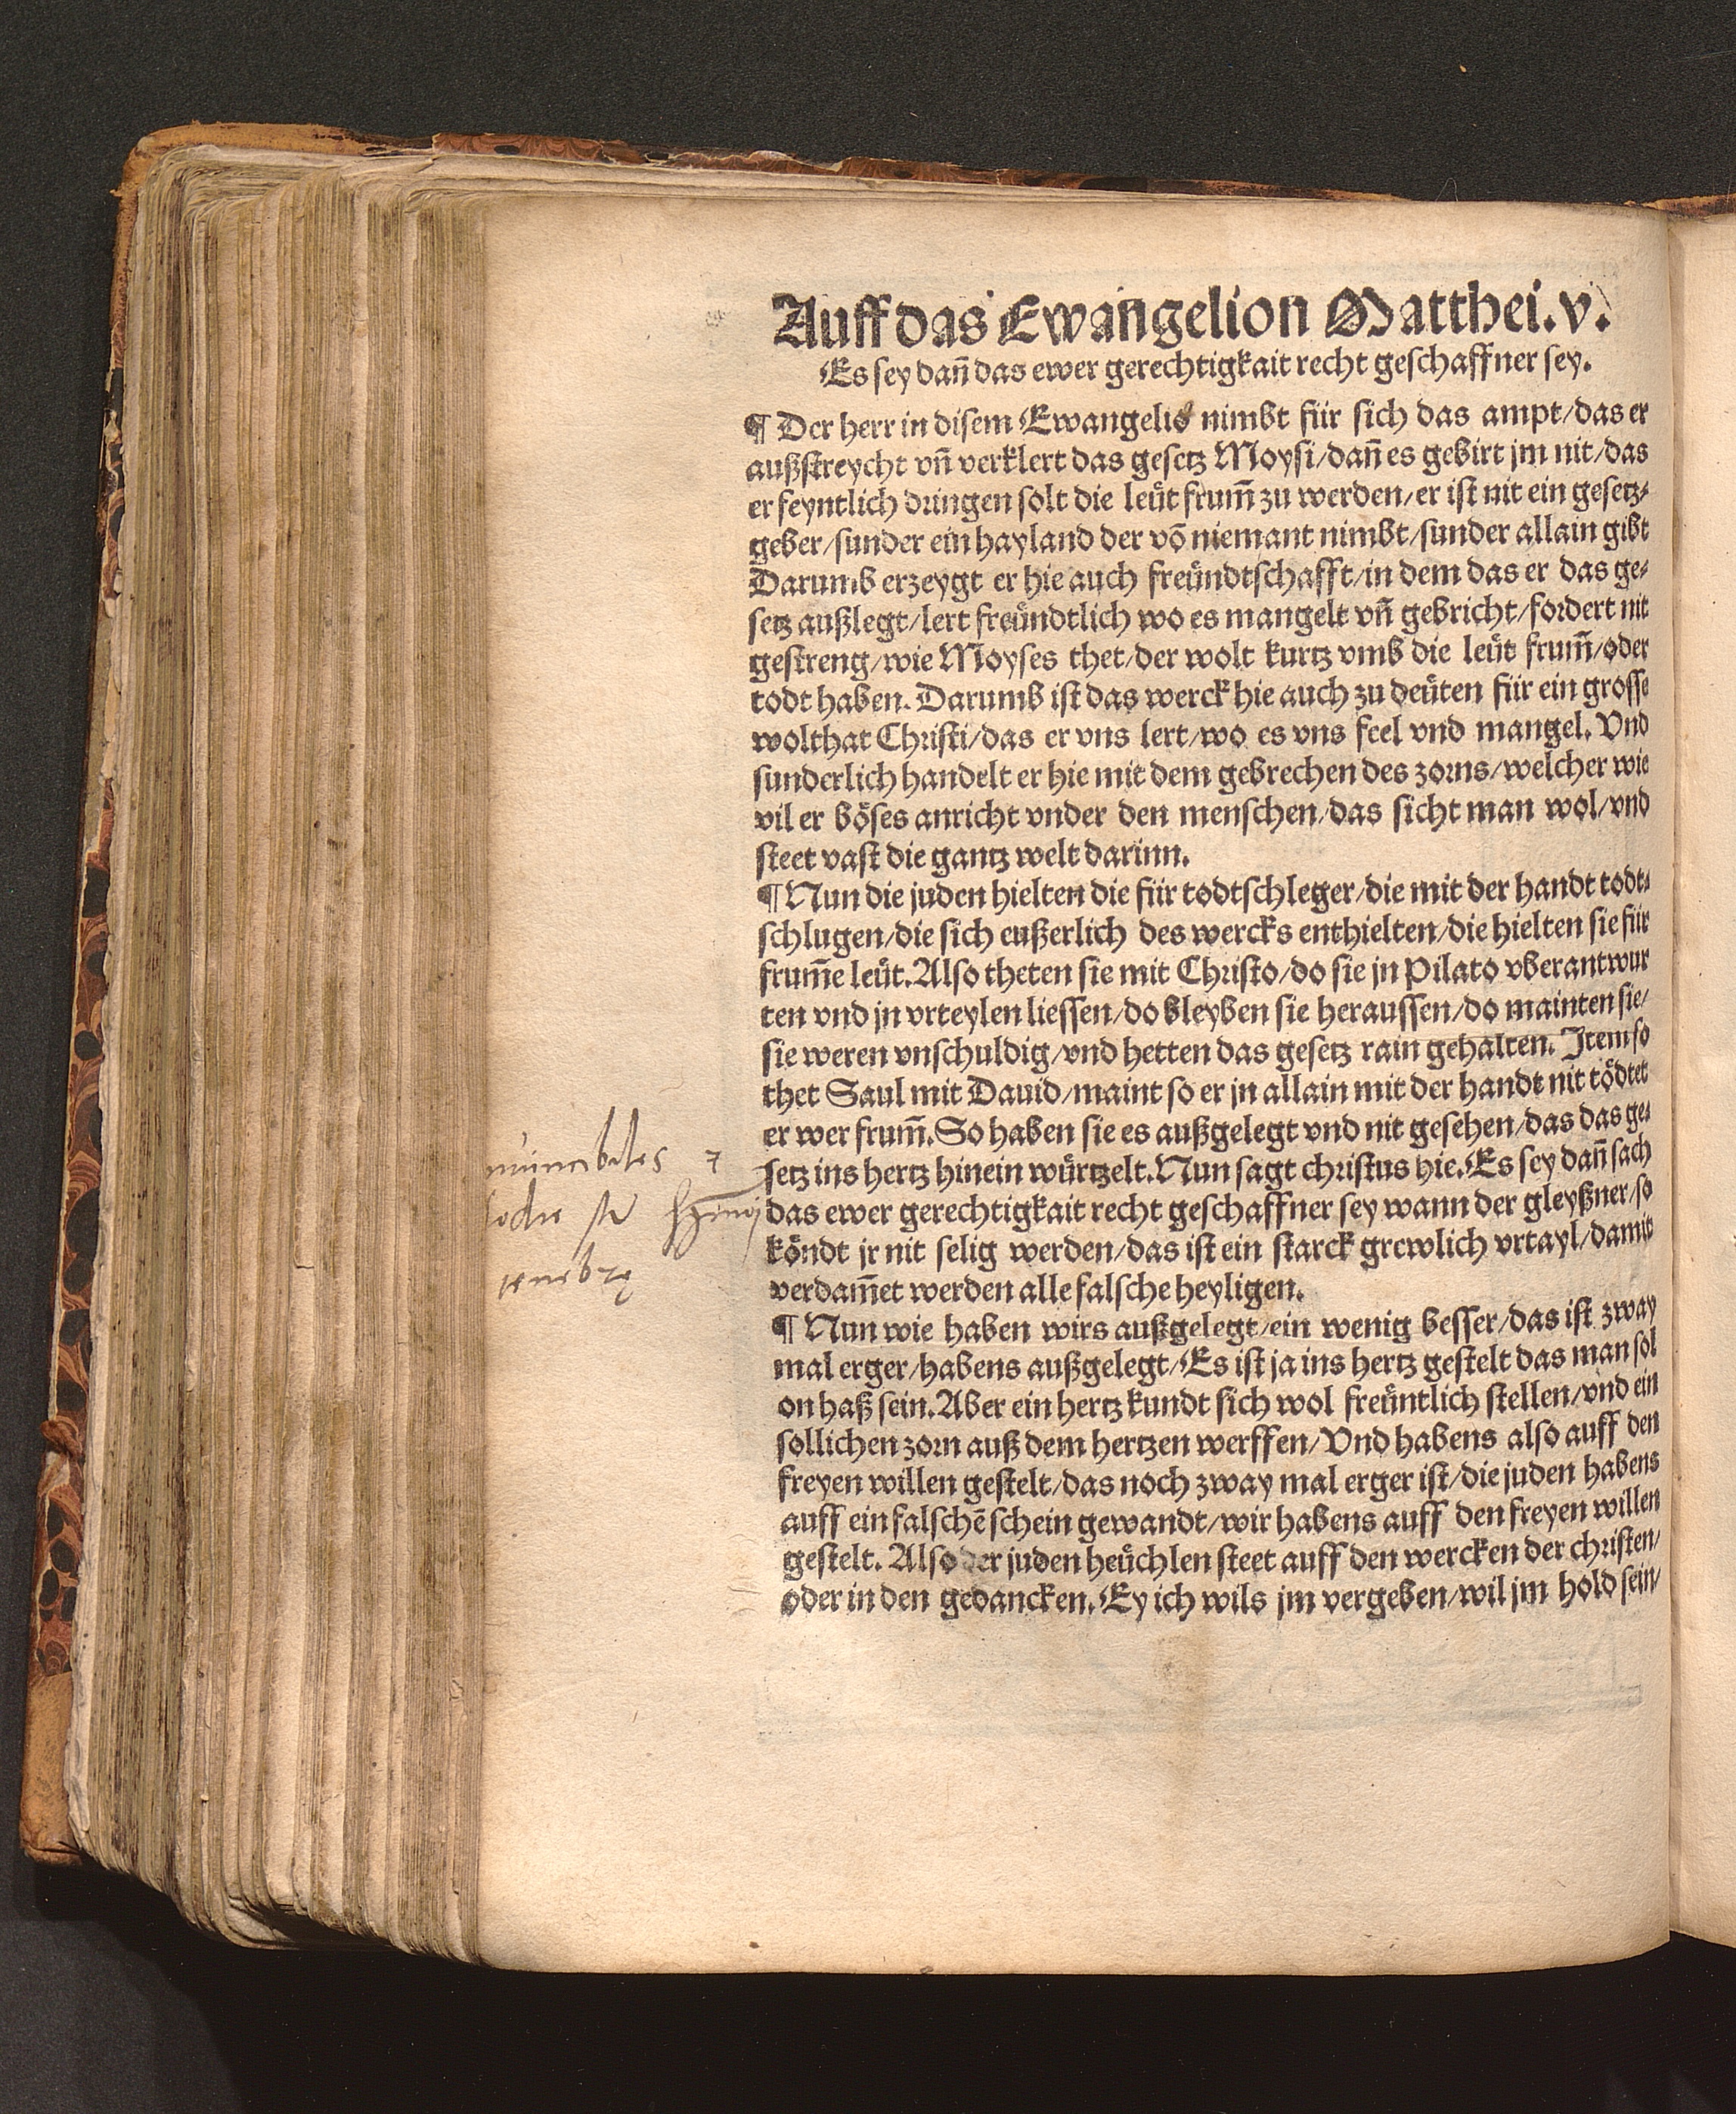 Auff das Ewangelion Matthei. v.
Es sey dañ das ewer gerechtigkait recht geschaffner sey.
¶ Der herr in disem Ewangelio nimbt für sich das ampt/das er
außstreycht vñ verklert das gesetz Moysi/dañ es gebirt jm nit/das
er feyntlich dringen solt die leüt frum̃ zu werden/er ist nit ein gesetz⸗
geber/sunder ein hayland der võ niemant nimbt/sunder allain gibt
Darumb erzeygt er hie auch freündtschafft/in dem das er das ge⸗
setz außlegt/lert freündtlich wo es mangelt vñ gebricht/fordert nit
gestreng/wie Moyses thet/der wolt kurtz vmb die leüt frum̃/oder
todt haben. Darumb ist das werck hie auch zu deüten für ein grosse
wolthat Christi/das er vns lert/wo es vns feel vnd mangel. Vnd
sunderlich handelt er hie mit dem gebrechen des zorns/welcher wie
vil er böses anricht vnder den menschen/das sicht man wol/vnd
steet vast die gantz welt darinn.
¶ Nun die juden hielten die für todtschleger/die mit der handt todt⸗
schlugen/die sich eußerlich des wercks enthielten/die hielten sie für
frum̃e leüt. Also theten sie mit Christo/do sie jn Pilato vberantwur
ten vnd jn vrteylen liessen/do bleyben sie heraussen/do mainten sie/
sie weren vnschuldig/vnd hetten das gesetz rain gehalten. Item so
thet Saul mit Dauid/maint so er jn allain mit der handt nit tödtet
er wer frum̃. So haben sie es außgelegt vnd nit gesehen/das das ge⸗
setz ins hertz hinein würtzelt. Nun sagt christus hie. Es sey dañ sach
das ewer gerechtigkait recht geschaffner sey wann der gleyßner/so
köndt jr nit selig werden/das ist ein starck grewlich vrtayl/damit
verdam̃et werden alle falsche heyligen.
¶ Nun wie haben wirs außgelegt/ein wenig besser/das ist zway
mal erger/habens außgelegt/Es ist ja ins hertz gestelt das man sol
on haß sein. Aber ein hertz kundt sich wol freüntlich stellen/vnd ein
sollichen zorn auß dem hertzen werffen/Vnd habens also auff den
freyen willen gestelt/das noch zway mal erger ist/die juden habens
auff ein falschẽ schein gewandt/wir habens auff den freyen willen
gestelt. Also der juden heüchlen steet auff den wercken der christen/
oder in den gedancken. Ey ich wils jm vergeben/wil jm hold sein/
tenebrę